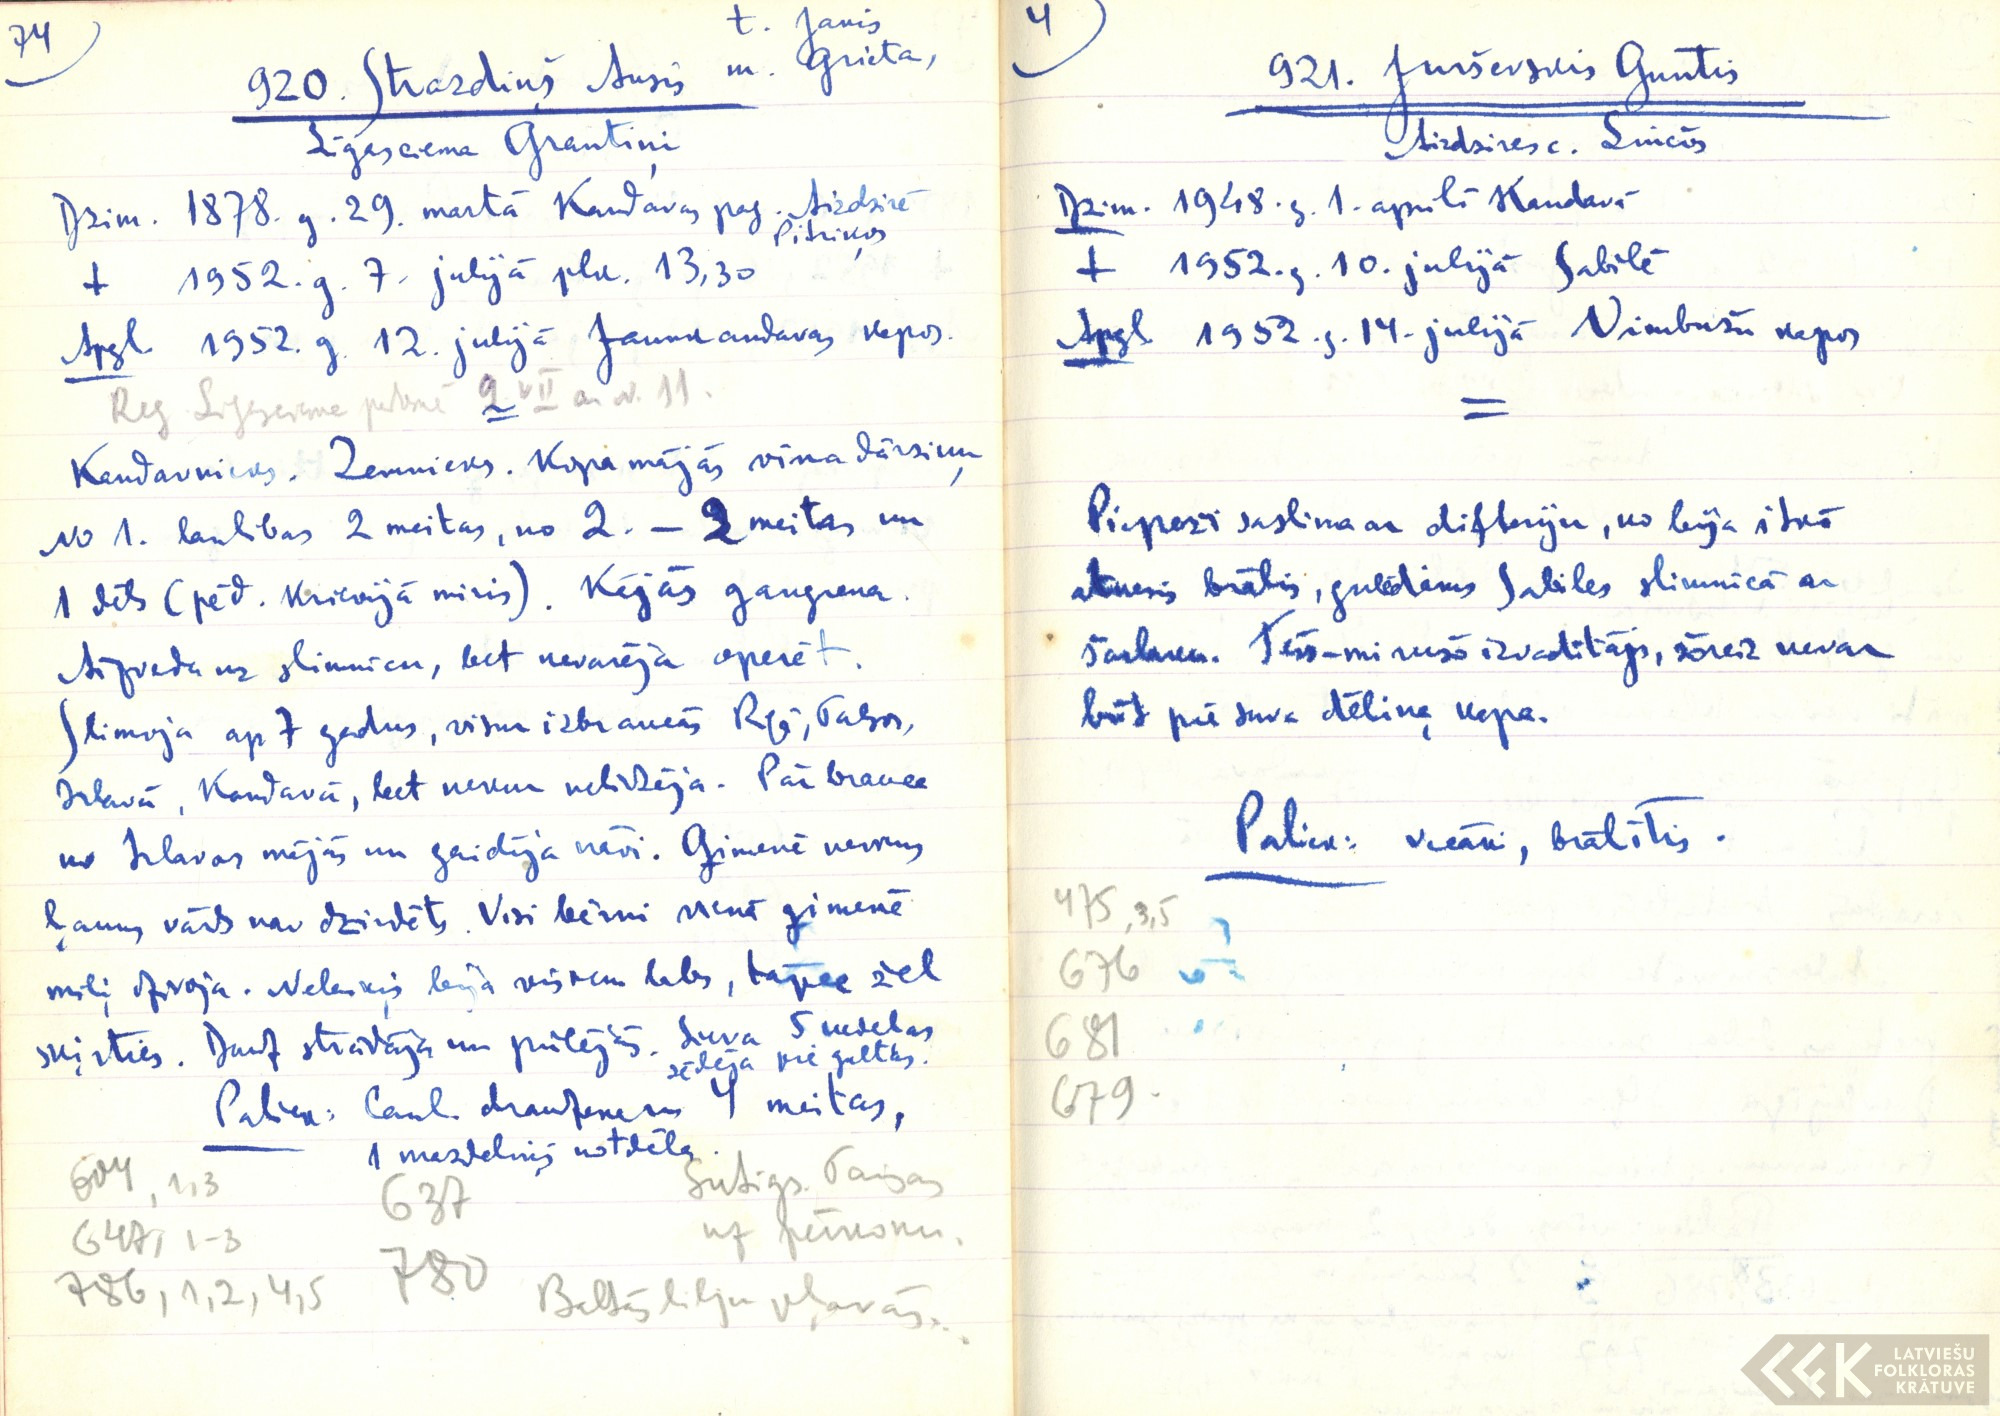 74
t. Janis
m. Grieta,
920. Strazdiņš Ansis
Līgasciema Grantiņi
Dzim. 1878. g. 29. martā Kandavas pag. Aizdzirē
Pitriķos
+ 1952. g. 7. julijā plk. 13,30
Apgl. 1952. g. 12. julijā Jaunkandavas kapos.
Reg. Līgasciema padomē 9. VII ar N. 11.
Kandavnieks. Zemnieks. Kopa mājās viņa dārziņu
No 1. laulības 2 meitas, no 2. – 2 meitas un
1 dēls (pēd. Krievijā miris). Kājās gangrena.
Aizveda uz slimnicu, bet nevarēja operēt.
Slimoja ap 7 gadus, visur izbraucās Rīgā, Talsos,
Irlavā, Kandavā, bet nekur nelīdzēja. Pārbrauca
no Irlavas mājās un gaidīja nāvi. Ģimenē nekāds
ļauns vārds nav dzirdēts. Visi bērni vienā ģimenē
mīļi dzīvoja. Nelaiķis bija visiem labs, tāpēc žēl
šķirties. Daudz strādāja un pūlējās. Sieva 5 nedēļas
sēdēja pie gultas.
Paliek: Laul. draudzene 4 meitas,
1 mazdēliņš no dēla.
604, 1,3
637
647, 1-3
786, 1,2,4,5
780
Gaisos
uz pērkonu.
Baltās liliju pļavās...
4
921. Jurševskis Guntis
Aizdzires c. Lnicēs
Dzim. 1948. g. 1. aprilī Kandavā
+ 1952. g. 10. julijā Sabilē
Apgl. 1952. g. 14. julijā Vimbušu kapos
=
Piepeži saslima ar difteriju, ko bija it kā
atnesis brālis, gulēdams Sabiles slimnicā ar
šarlaku. Tēvs – mirušo izvadītājs, šoreiz nevar
būt pie sava dēliņa kapa.
Paliek: vecāki, brālītis.
475, 3,5
676
681
679.
LATVIEŠU
FOLKLORAS
KRĀTUVE